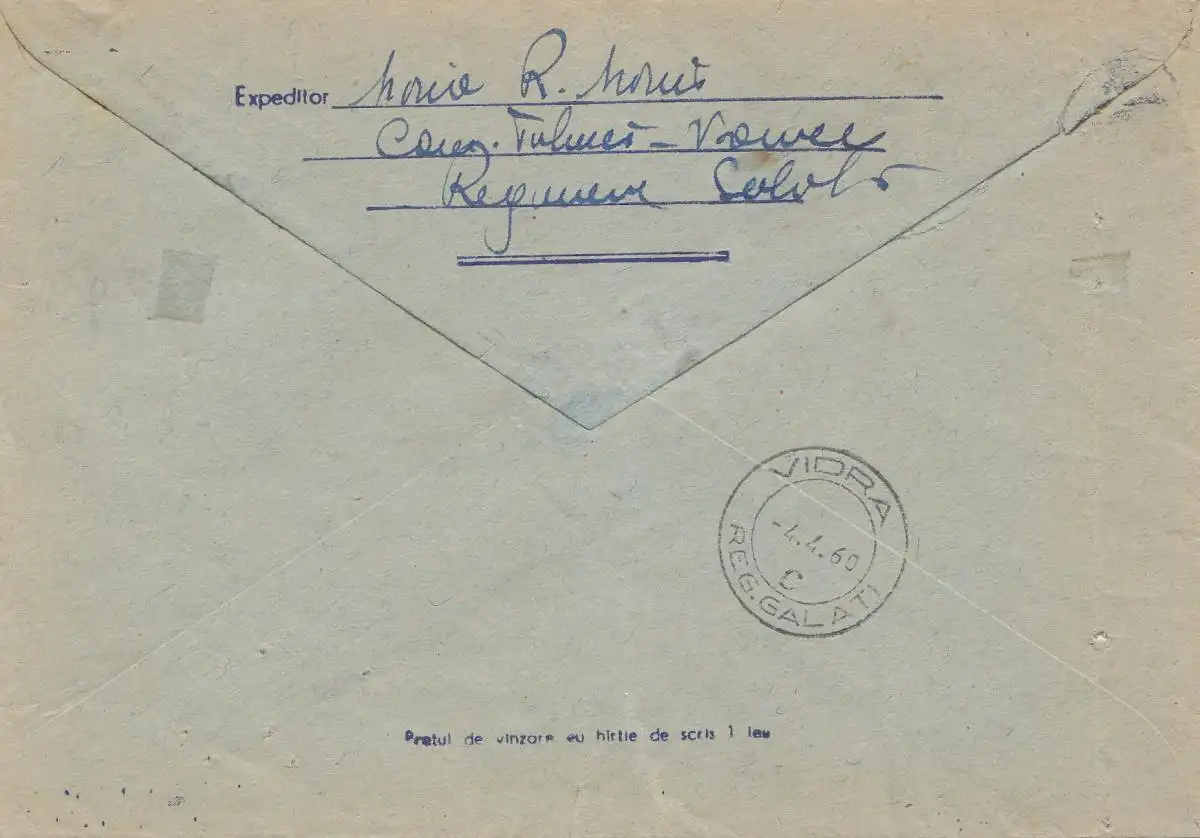 Expeditor Horia R. Horia
Com. Tulnici – Vrancea
Regiunea Galați
VIDRA
-4.4.60
C
REG. GALATI
Pretul de vinzare cu hirtie de scris 1 leu